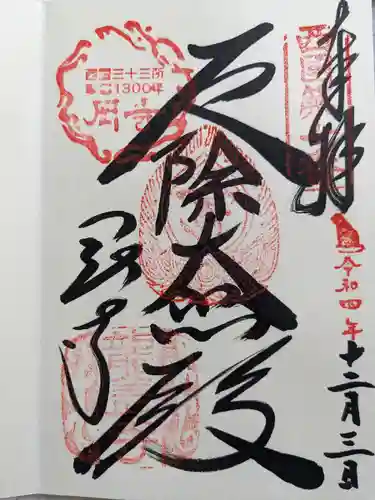 奉拝
令和四年
十二月三日
厄除大悲殿
岡寺
西国三十三所
草創1300年
岡寺